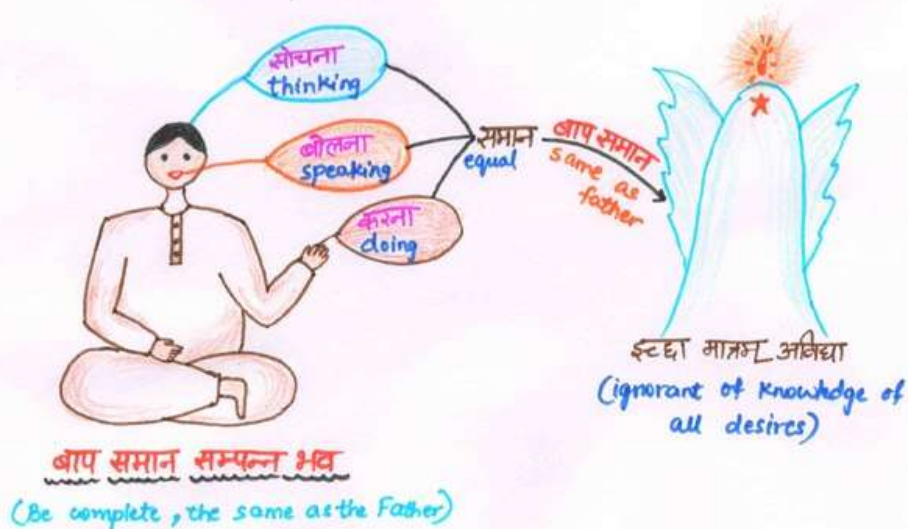 सोचना
thinking
बोलना
speaking
करना
doing
समान
equal
बाप समान
same as
father
इच्छा मात्रम् अविद्या
(ignorant of knowledge of
all desires)
बाप समान सम्पन्न भव
(Be complete, the same as the Father)